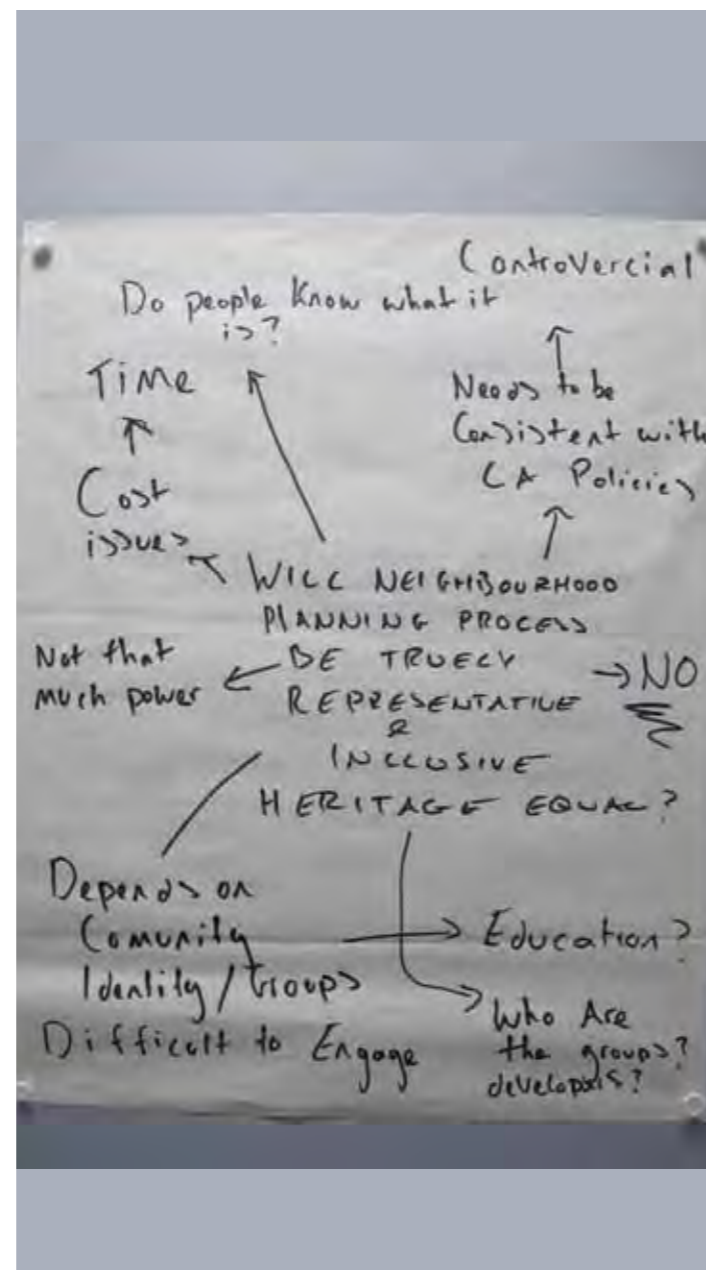 Controvercial
Do people Know what it
is?
Time
Needs to be
Consistent with
CA Policies
Cost
issues
WILL NEIGHBOURHOOD
PLANNING PROCESS
BE TRUELY
REPRESENTATIVE
&
INCLUSIVE
HERITAGE EQUAL?
Not that
much power
NO
Depends on
Comunity
Identity/Groups
Difficult to Engage
Education?
Who Are
the groups?
developers?